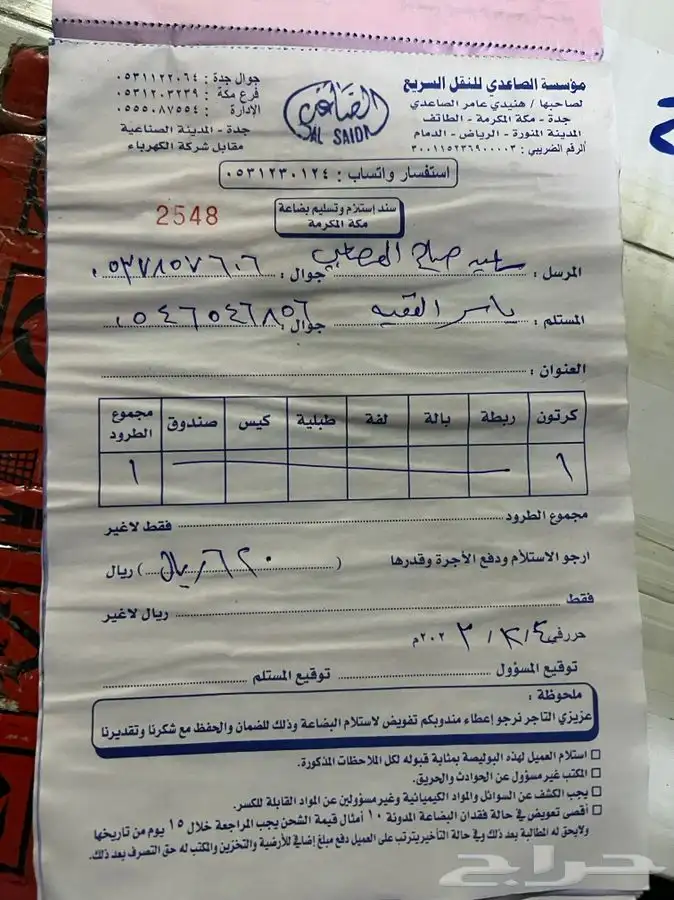 مؤسسة الصاعدي للنقل السريع
لصاحبها / هنيدي عامر الصاعدي
جدة - مكة المكرمة - الطائف
المدينة المنورة - الرياض - الدمام
الرقم الضريبي : ٣٠٠١١٥٢٣٦٩٠٠٠٠٣
الصاعدي
AL SAIDI
جوال جدة : ٠٥٣١١٢٢٠٦٤
فرع مكة : ٠٥٣١٢٠٣٢٣٩
الإدارة : ٠٥٥٥٠٨٧٥٥٤
جدة - المدينة الصناعية
مقابل شركة الكهرباء
استفسار واتساب : ٠٥٣١٢٣٠١٢٤
2548
سند إستلام وتسليم بضاعة
مكة المكرمة
المرسل : صباح جوال : ٠٥٣٧٨٥٧٦٠٦
المستلم : ياسر الفقيه جوال : ٠٥٤٦٥٤٦٨٥٦
العنوان :
كرتون ربطة بالة لفة طبلية كيس صندوق مجموع الطرود
١ ١
مجموع الطرود فقط لاغير
ارجو الاستلام ودفع الأجرة وقدرها ( ) ريال
فقط ريال لاغير
حرر في ٤ / ٣ / ٢٠٢٣م
توقيع المسؤول توقيع المستلم
ملحوظة :
عزيزي التاجر نرجو إعطاء مندوبكم تفويض لاستلام البضاعة وذلك للضمان والحفظ مع شكرنا وتقديرنا
استلام العميل لهذه البوليصة بمثابة قبوله لكل الملاحظات المذكورة.
المكتب غير مسؤول عن الحوادث والحريق.
يجب الكشف عن السوائل والمواد الكيميائية وغير مسؤولين عن المواد القابلة للكسر.
أقصى تعويض في حالة فقدان البضاعة المدونة ١٠ أمثال قيمة الشحن يجب المراجعة خلال ١٥ يوم من تاريخها
ولايحق له المطالبة بعد ذلك وفي حالة التأخير يترتب على العميل دفع مبلغ إضافي للأرضية والتخزين والمكتب له حق التصرف بعد ذلك.
حراج